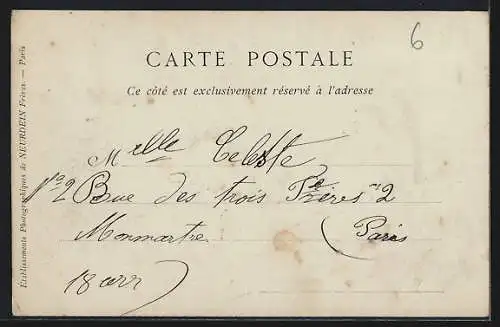 6
CARTE POSTALE
Ce côté est exclusivement réservé à l'adresse
Melle Celeste
No 2 Rue des trois Frères 2
Monmartre (Paris
18 arr)
Etablissements Photographiques de NEURDEIN Frères. — Paris